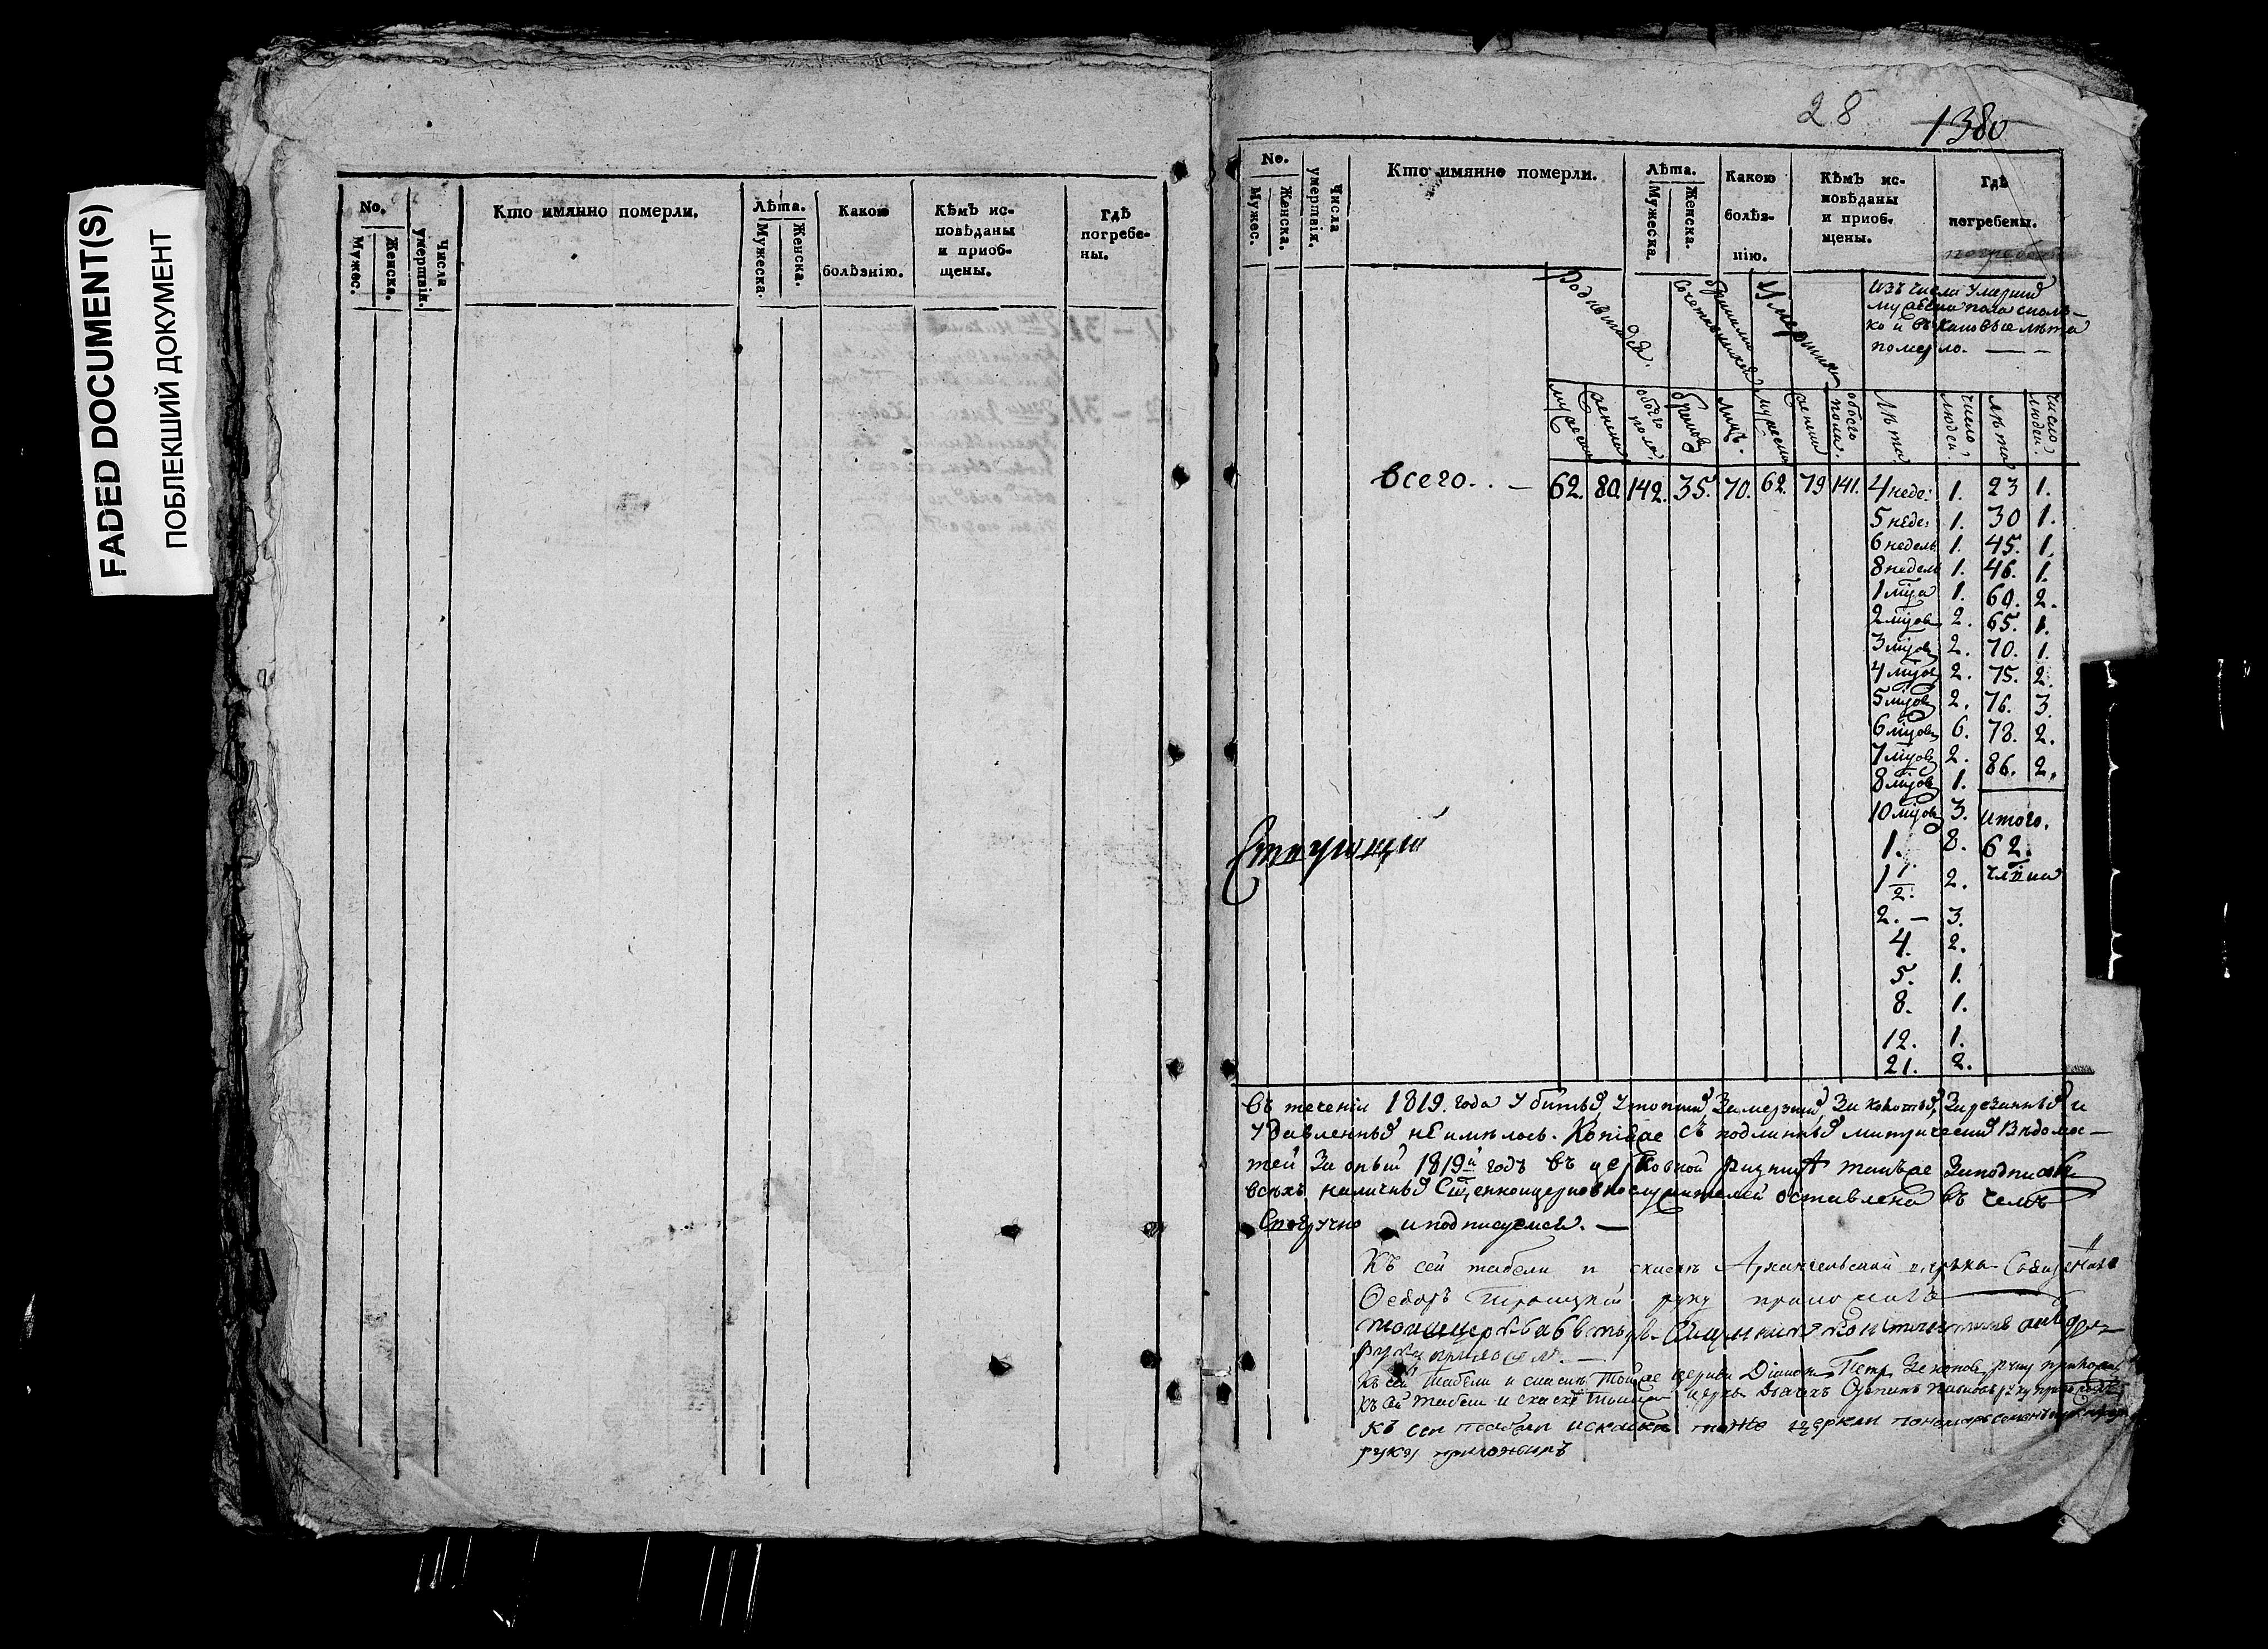 FADED DOCUMENT(S)
ПОБЛЕКШИЙ ДОКУМЕНТ
No.
Мужес.
Женска.
Числа умертвія.
Кто имянно померли.
Лѣта.
Мужеска.
Женска.
Какою
болѣзнію.
Кѣмъ ис-
повѣданы
и приоб-
щены.
Гдѣ
погребе-
ны.
28
1380
No.
Мужес.
Женска.
Числа умертвія.
Кто имянно померли.
Лѣта.
Мужеска.
Женска.
Какою
болѣз-
нію.
Кѣмъ ис-
повѣданы
и приоб-
щены.
Гдѣ
погребены.
Родившихся.
бракомъ
сочетавшихся
Умершихъ
изъ числа умершихъ
мужеска пола сколь-
ко и въ каковые лѣта
померло. — —
мужеска
женска
обоего пола
браковъ
лицъ.
мужеска
женска
обоего пола.
лѣта
число людей.
лѣта
число людей.
всего. . — 62. 80. 142. 35. 70. 62. 79 141. 4 неде: 1. 23 1.
5 неде: 1. 30 1.
6 недель 1. 45. 1.
8 недель 1. 46. 1.
1 мца 1. 60. 2.
2 мцов 2. 65. 1.
3 мцов 2. 70. 1.
4 мцов 2. 75. 2.
5 мцов 2. 76. 3.
6 мцов 6. 78. 2.
7 мцов 2. 86. 2.
8 мцов 1.
10 мцов 3. итого.
1. 8. 62.
1 1/2. 2.
2. — 3.
4. 2.
5. 1.
8. 1.
12. 1.
21. 2.
въ теченіи 1819. года убитыхъ, утопшихъ, замерзшихъ, зарезанныхъ и
удавленныхъ не имѣлось. Копія съ подлинныхъ Вѣдомос-
тей за оный 1819й годъ въ церковной ризницѣ
всѣхъ наличныхъ оставлена въ чемъ
и подписуемся. —
Къ сей табели и сказкѣ Архангельской церкви Священникъ
Феодоръ Троицкій руку приложилъ
руку приложилъ. —
Къ сей табели и сказкѣ тойже церкви Діаконъ Петръ руку
Къ сей табели и сказкѣ тойже церкви Дьячокъ руку
Къ сей табели и сказкѣ тоже церкви пономарь
руку приложилъ